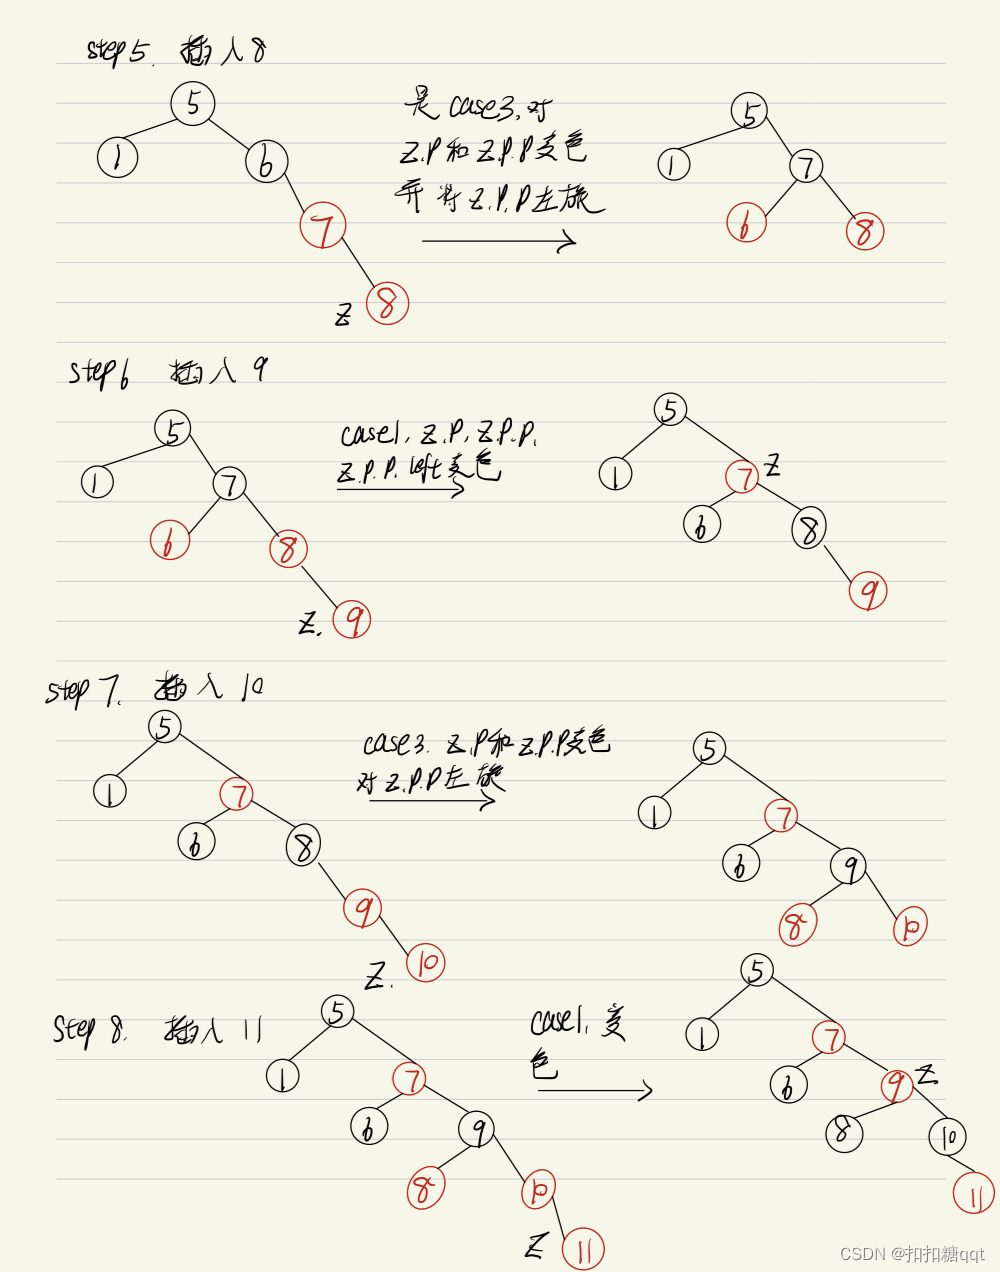 step5. 插入8
5
1
6
7
z 8
是case3,对
z.p和z.p.p变色
并将z.p.p左旋
5
1
7
6
8
step6 插入9
5
1
7
6
8
z. 9
case1, z.p, z.p.p,
z.p.p.left变色
5
1
7 z
6
8
9
step7. 插入10
5
1
7
6
8
9
z. 10
case3. z.p和z.p.p变色
对z.p.p左旋
5
1
7
6
9
8
10
step 8. 插入11
5
1
7
6
9
8
10
z 11
case1, 变
色
5
1
7
6
9 z
8
10
11
CSDN @扣扣糖qqt